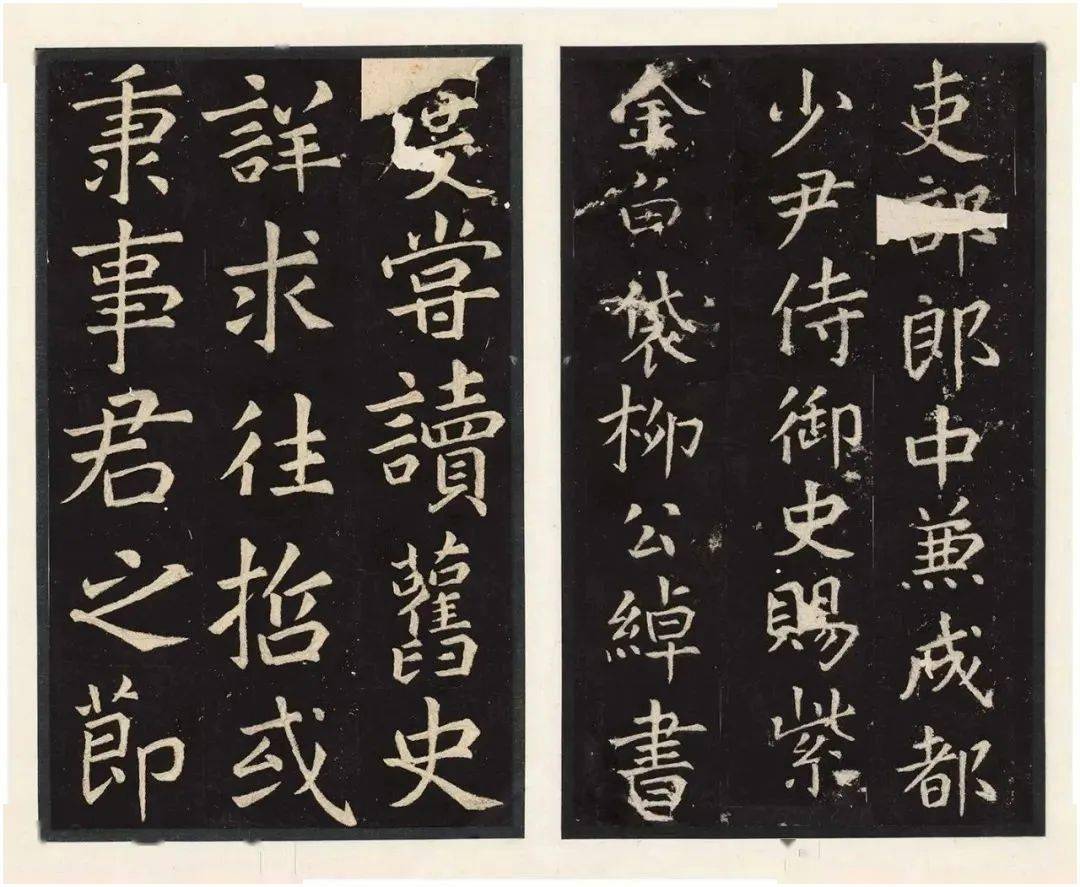 吏部郎中兼成都
少尹侍御史賜紫
金魚袋柳公綽書
度嘗讀舊史
詳求往哲或
秉事君之節